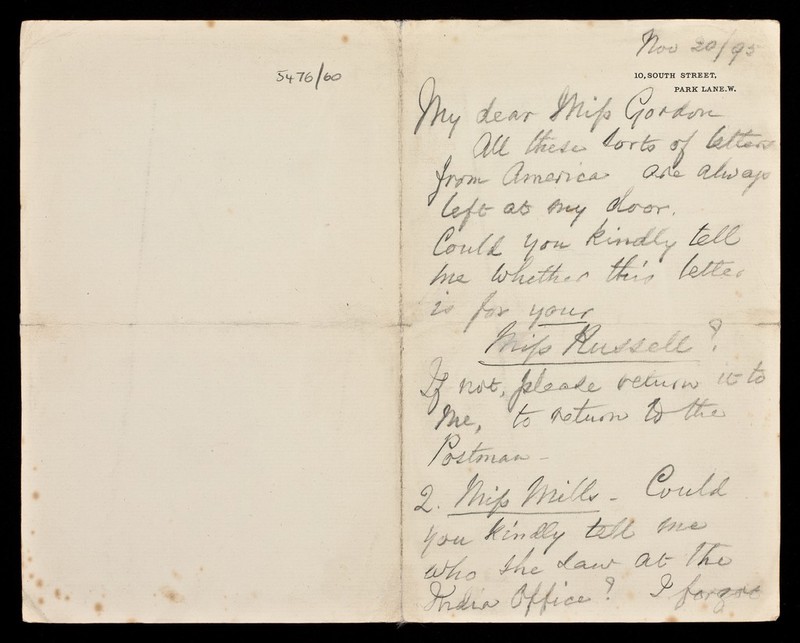 5476/60
Nov 20/95
10, SOUTH STREET,
PARK LANE. W.
My dear Miss Gordon
All these sorts of letters
from America are always
left at my door.
Could you kindly tell
me whether this letter
is for your
Miss Russell?
If not, please return it to
me, to return to the
Postman -
2. Miss Mills - Could
you kindly tell me
who she saw at the
India Office? I forgot